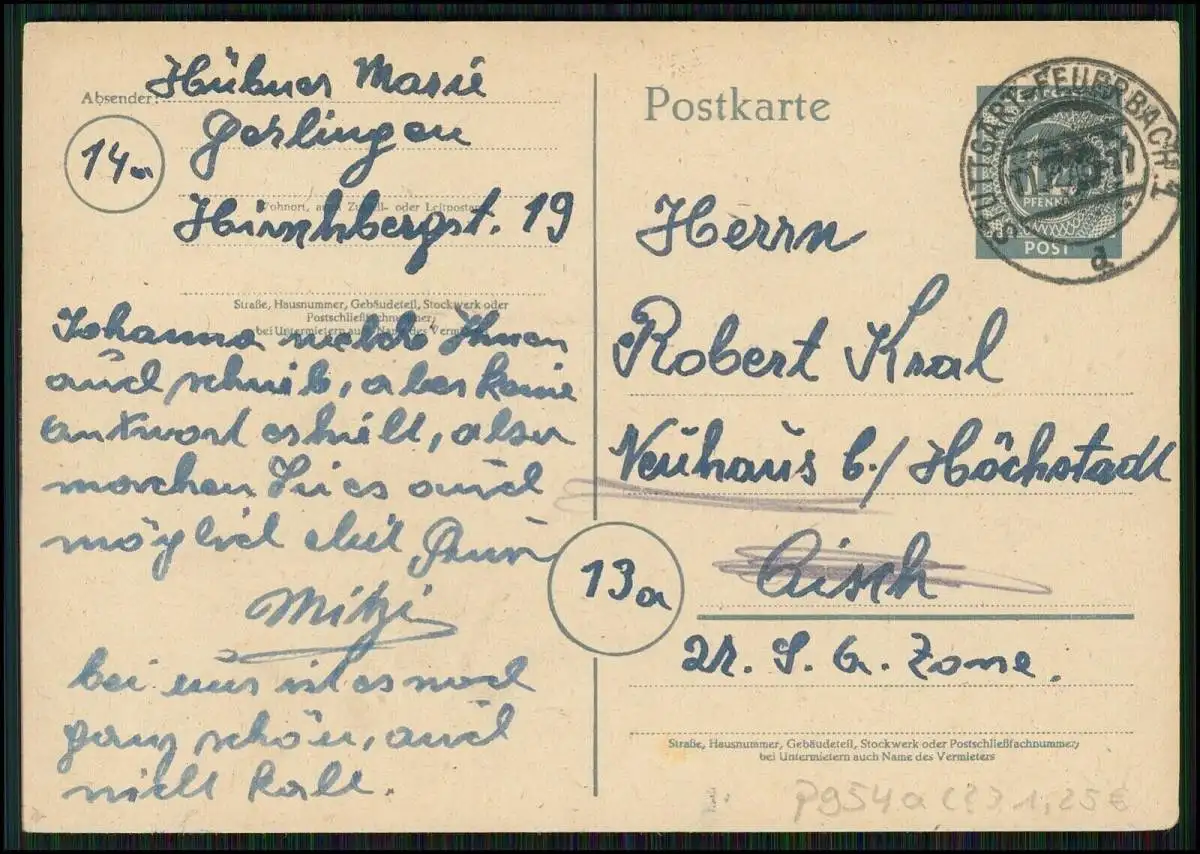 Hübner Marie
Absender:
Gerlingen
14a
Wohnort, auch Zustell- oder Leitpostamt
Hirschbergst. 19
Straße, Hausnummer, Gebäudeteil, Stockwerk oder
Postschließfachnummer;
bei Untermietern auch Name des Vermieters
Johanna Ihnen
auch schrieb, aber keine
antwort erhielt, also
machen Sie es auch
möglich
Mitzi
bei uns ist es noch
ganz schön, auch
nicht kalt.
Postkarte
STUTTGART-FEUERBACH 1
PFENNIG
POST
a
Herrn
Robert Kral
Neuhaus b./ Höchstadt
13a
Aisch
Zone.
Straße, Hausnummer, Gebäudeteil, Stockwerk oder Postschließfachnummer;
bei Untermietern auch Name des Vermieters
P954a (2) 1,25€